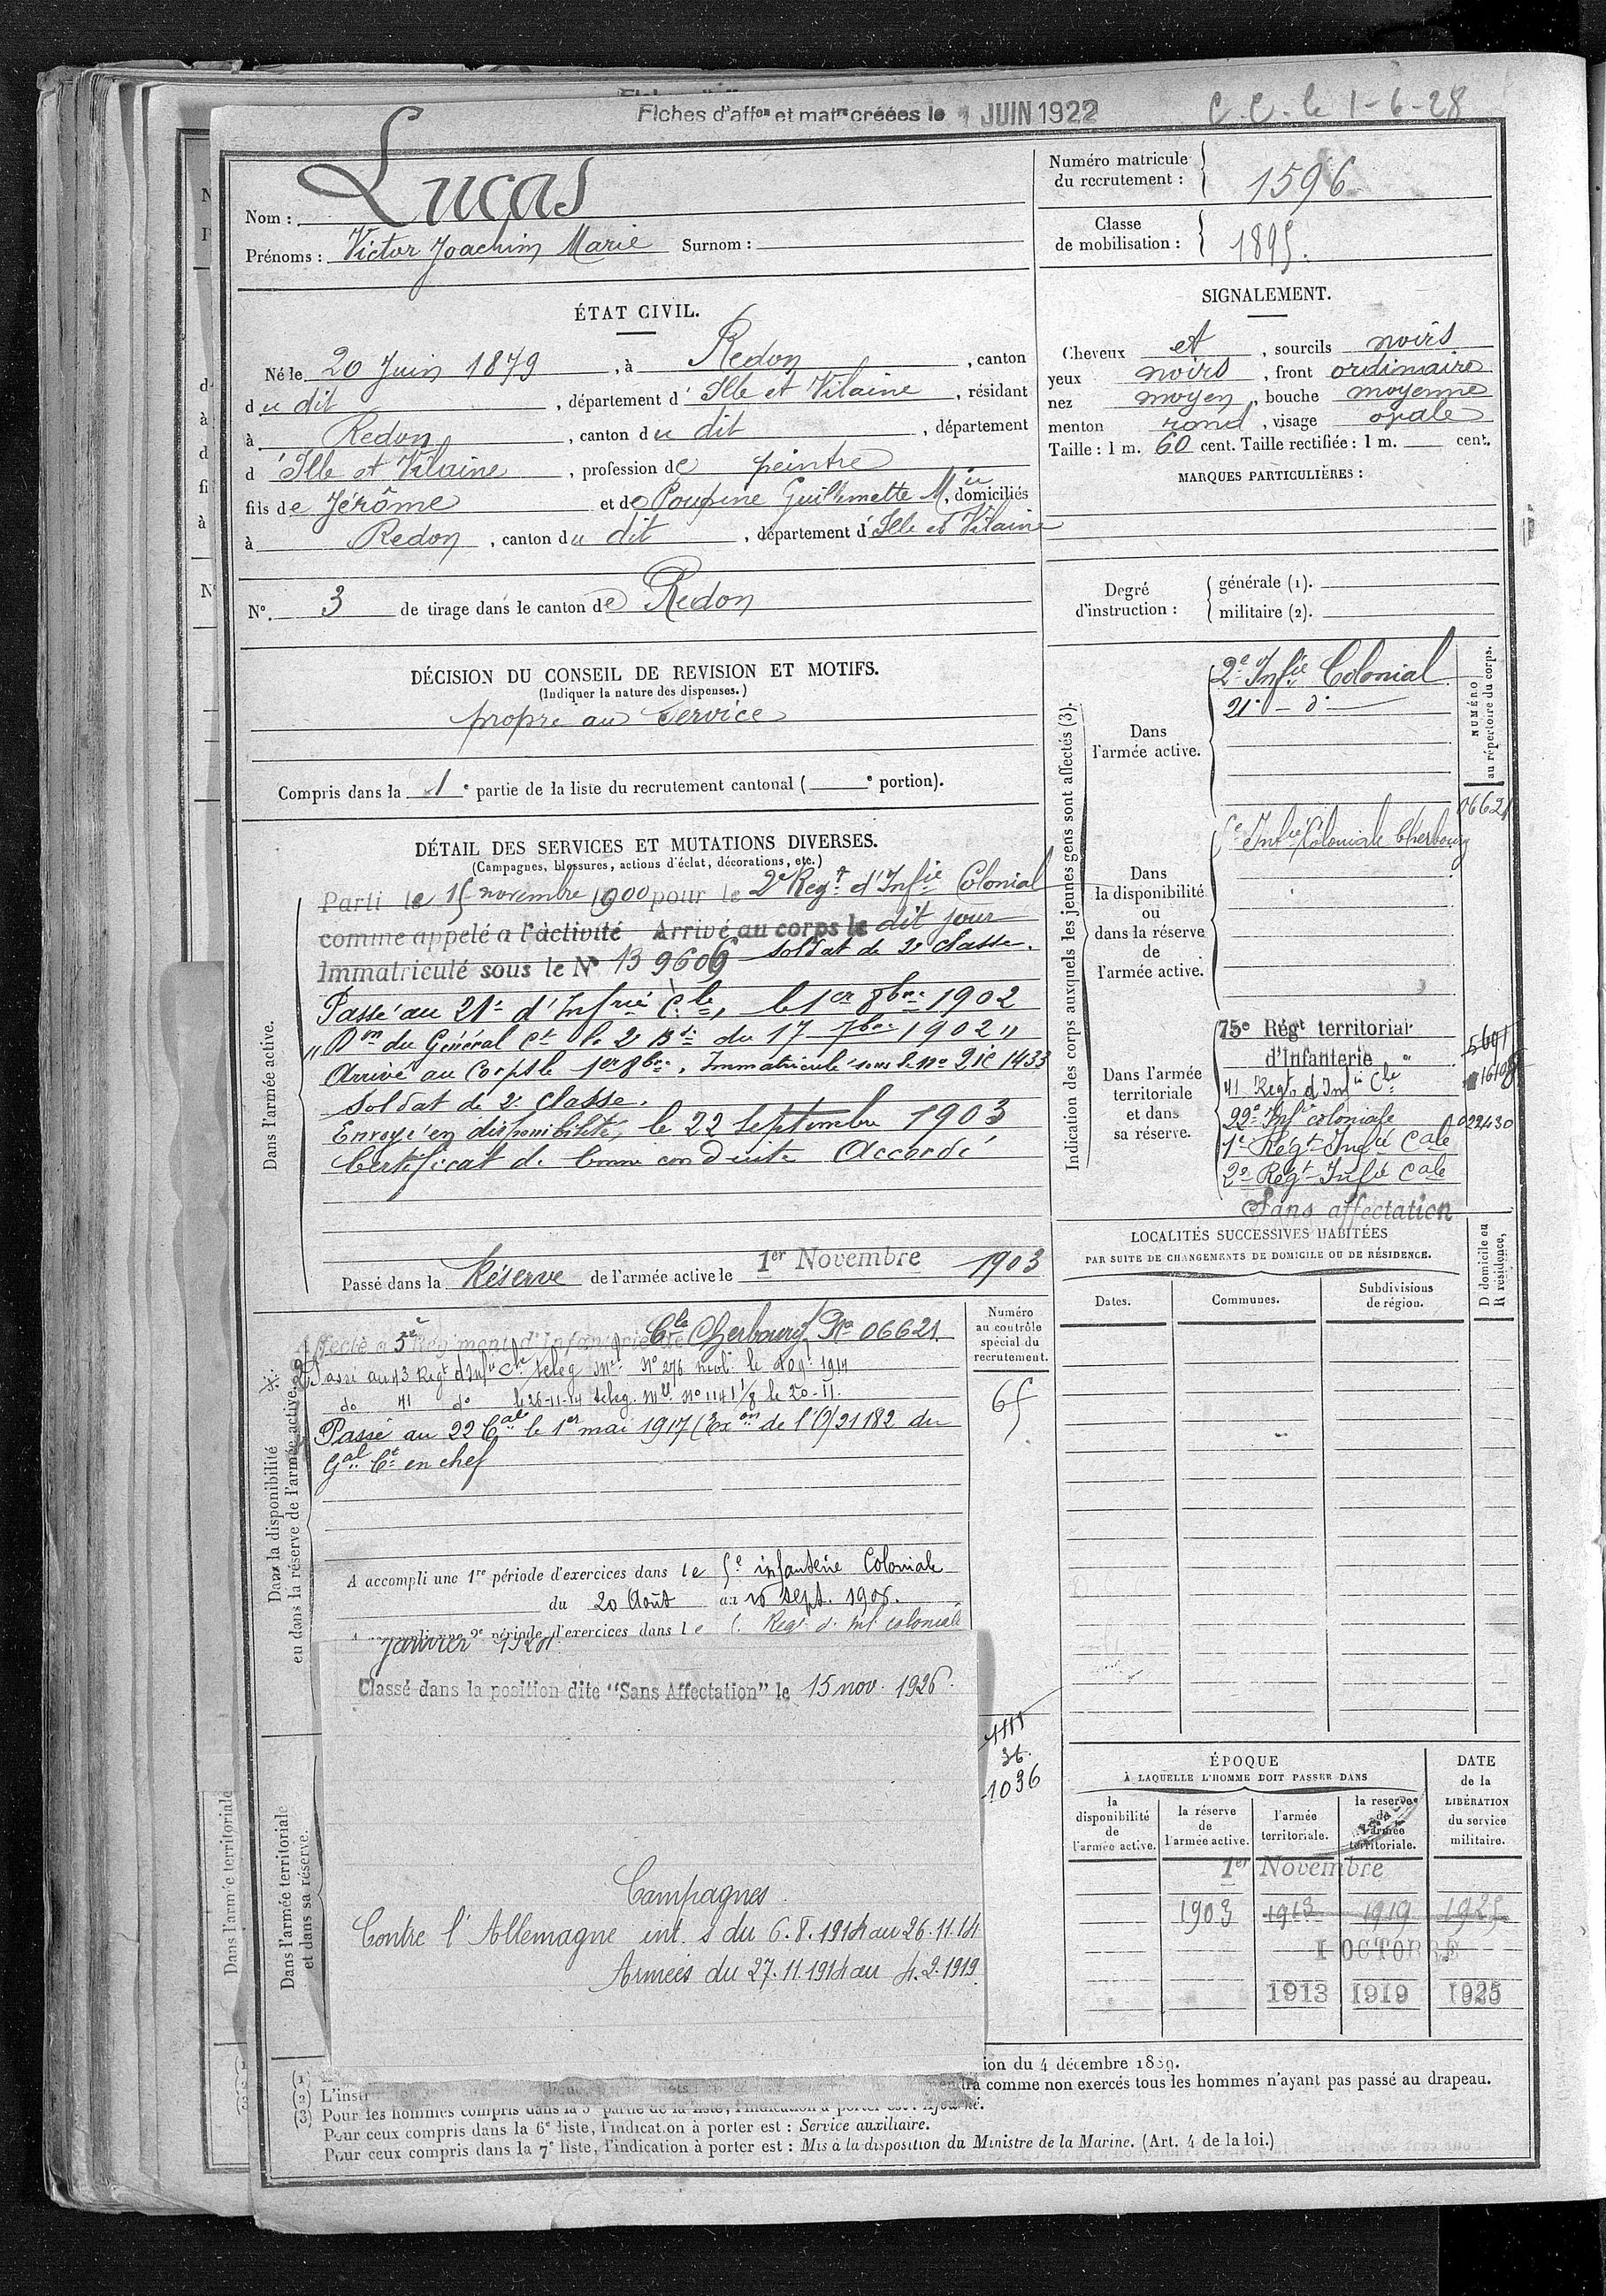 Fiches d'affon et matre créées le 1 JUIN 1922
C.C. le 1-6-28
Nom : Lucas
Prénoms : Victor Joachim Marie Surnom :
Numéro matricule
du recrutement : 1596
Classe
de mobilisation : 1895.
ÉTAT CIVIL.
Né le 20 Juin 1879, à Redon, canton
du dit, département d'Ille et Vilaine, résidant
à Redon, canton du dit, département
d'Ille et Vilaine, profession de peintre
fils de Jérôme et de Guillemette Mie, domiciliés
à Redon, canton du dit, département d'Ille et Vilaine
No. 3 de tirage dans le canton de Redon
SIGNALEMENT.
Cheveux et, sourcils noirs
yeux noirs, front ordinaire
nez moyen, bouche moyenne
menton rond, visage ovale
Taille : 1 m. 60 cent. Taille rectifiée : 1 m. cent.
MARQUES PARTICULIÈRES :
Degré
d'instruction :
générale (1).
militaire (2).
DÉCISION DU CONSEIL DE REVISION ET MOTIFS.
(Indiquer la nature des dispenses.)
propre au service
Compris dans la 1e partie de la liste du recrutement cantonal ( e portion).
DÉTAIL DES SERVICES ET MUTATIONS DIVERSES.
(Campagnes, blessures, actions d'éclat, décorations, etc.)
Dans l'armée active.
Parti le 15 novembre 1900 pour le 2e Regt d'Infie Colonial
comme appelé a l'activité Arrivé au corps le dit jour
Immatriculé sous le No 13 9606 soldat de 2e classe.
Passé au 21e d'Infrie Cle, le 1er 8bre 1902
"Don du Général Ct la 2 Bde du 17 7bre 1902"
Arrivé au Corps le 1er 8bre. Immatriculé sous le no 21c 1433
Soldat de 2e classe.
Envoyé en disponibilité, le 22 septembre 1903
Certificat de bonne conduite Accordé
Passé dans la Réserve de l'armée active le 1er Novembre 1903
Indication des corps auxquels les jeunes gens sont affectés (3).
NUMÉRO
au répertoire du corps.
Dans
l'armée active.
2e Infie Colonial
21e - do -
Dans
la disponibilité
ou
dans la réserve
de
l'armée active.
06621
5e Infie Coloniale Cherbourg
Dans l'armée
territoriale
et dans
sa réserve.
75e Régt territorial
d'Infanterie
41 Regt d'Infie Cle
22e Infie coloniale 022430
1e Régt Infie Cale
2e Régt Infie Cale
Sans affectation
Dans la disponibilité
ou dans la réserve de l'armée active.
Numéro
au contrôle
spécial du
recrutement.
65
Affecté au 5e Régiment d'Infanterie Cle Cherbourg No 06621
Passé au 43 Regt d'Infie Cle teleg Mel No 276 mob. le Aogt 1914
do 41 do le 26-11-14 teleg. Mel No 1141 1/8 le 20-11.
Passé au 22 Cal le 1er mai 1917 (Exon de l'O/21182 du
Gal Ct en chef
A accompli une 1re période d'exercices dans le 5e infanterie Coloniale
du 20 Août au 16 sept. 1906.
A accompli une 2e période d'exercices dans le Regt d. inf. coloniale
Janvier
Classé dans la position dite "Sans Affectation" le 15 nov. 1926.
1036
Campagnes.
Contre l'Allemagne int. s du 6.8.1914 au 26.11.14
Armées du 27.11.1914 au 4.2.1919
Dans l'armée territoriale
et dans sa réserve.
Dans l'armée territoriale
LOCALITÉS SUCCESSIVES HABITÉES
PAR SUITE DE CHANGEMENTS DE DOMICILE OU DE RÉSIDENCE.
Dates.
Communes.
Subdivisions
de région.
D domicile ou
R résidence,
ÉPOQUE
À LAQUELLE L'HOMME DOIT PASSER DANS
la
disponibilité
de
l'armée active.
la réserve
de
l'armée active.
l'armée
territoriale.
la reserve
de
l'armée
territoriale.
DATE
de la
LIBÉRATION
du service
militaire.
1er Novembre
1903 1913 1919 1925
1 OCTOBRE
1913 1919 1925
ion du 4 décembre 1889.
comme non exercés tous les hommes n'ayant pas passé au drapeau.
(1)
(2) L'instr
(3) Pour les hommes compris dans la 5e partie de la liste, l'indication à porter est : Ajourné.
Pour ceux compris dans la 6e liste, l'indication à porter est : Service auxiliaire.
Pour ceux compris dans la 7e liste, l'indication à porter est : Mis à la disposition du Ministre de la Marine. (Art. 4 de la loi.)